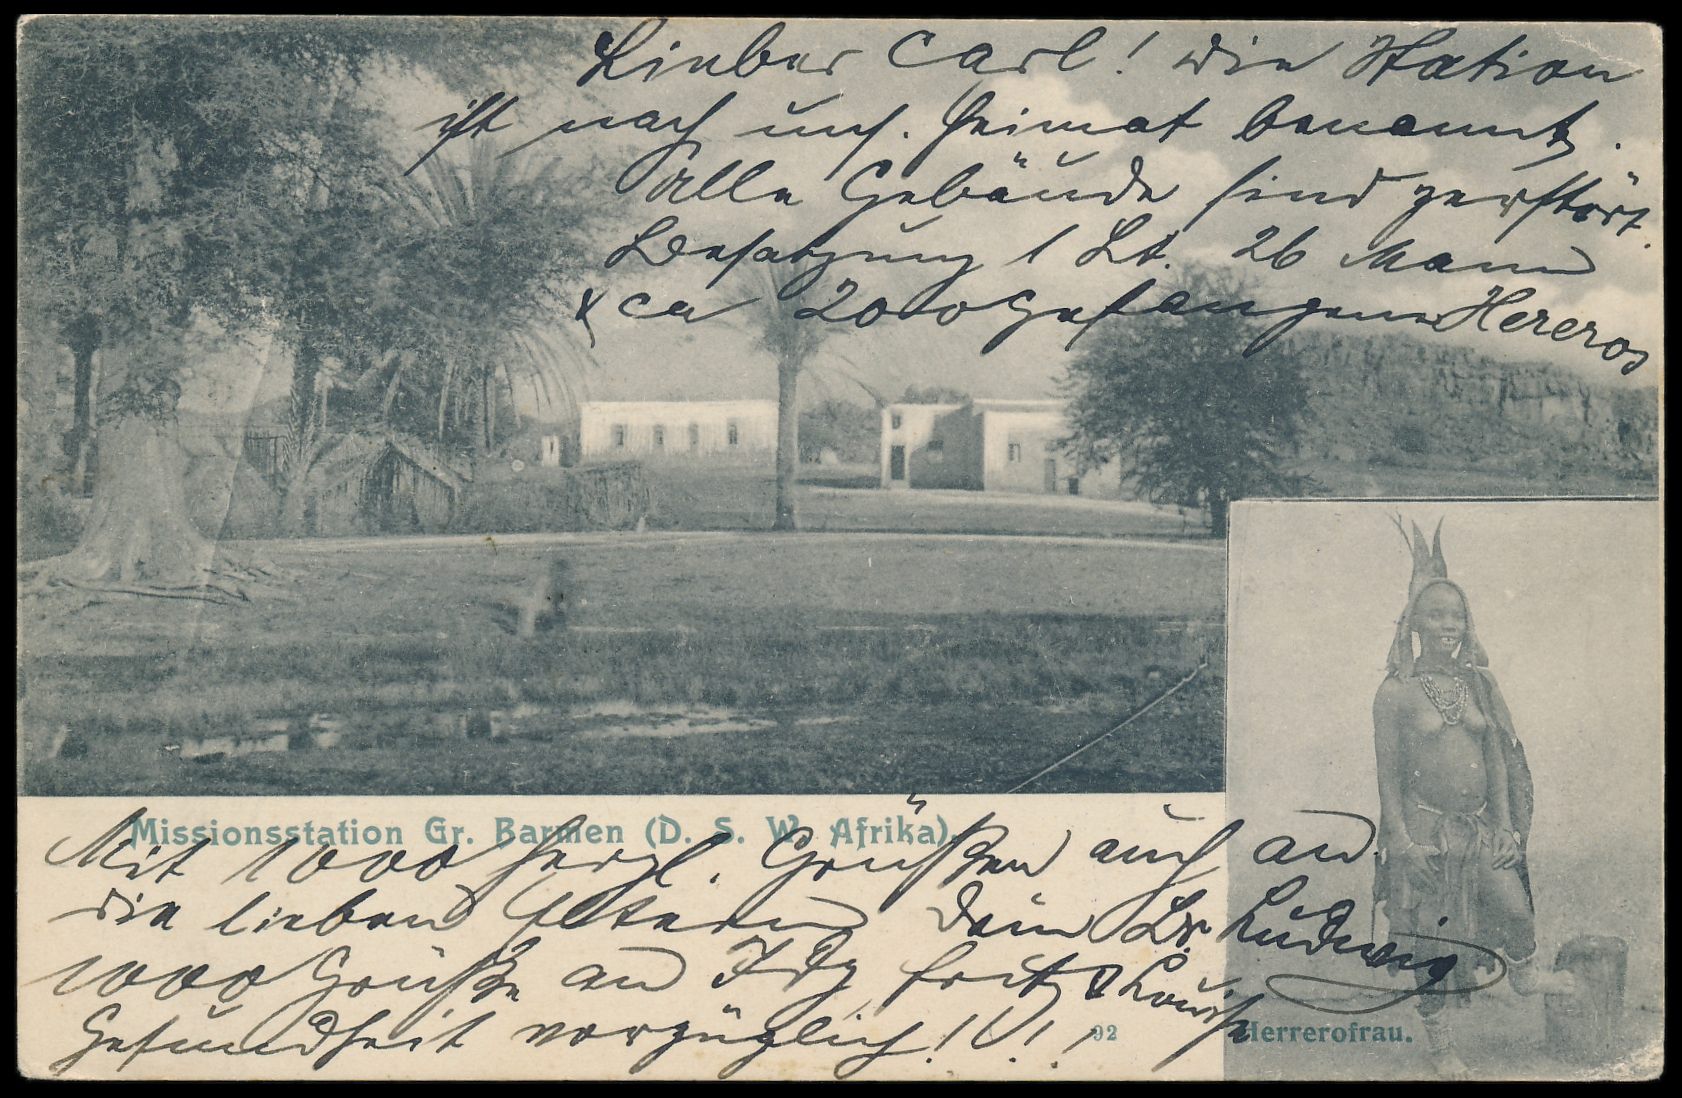 Lieber Carl! Die Station
ist nach uns. Heimat benannt.
Alle Gebäude sind zerstört.
Besatzung 1 Lt. 26 Mann
& ca 2000 gefangene Hereros
Missionsstation Gr. Barmen (D. S. W. Afrika).
Mit 1000 herzl. Grüßen auch an
die lieben Eltern Dein Br. Ludwig
1000 Grüße an Fritz & Louise
Gesundheit vorzüglich!!!
92
Herrerofrau.